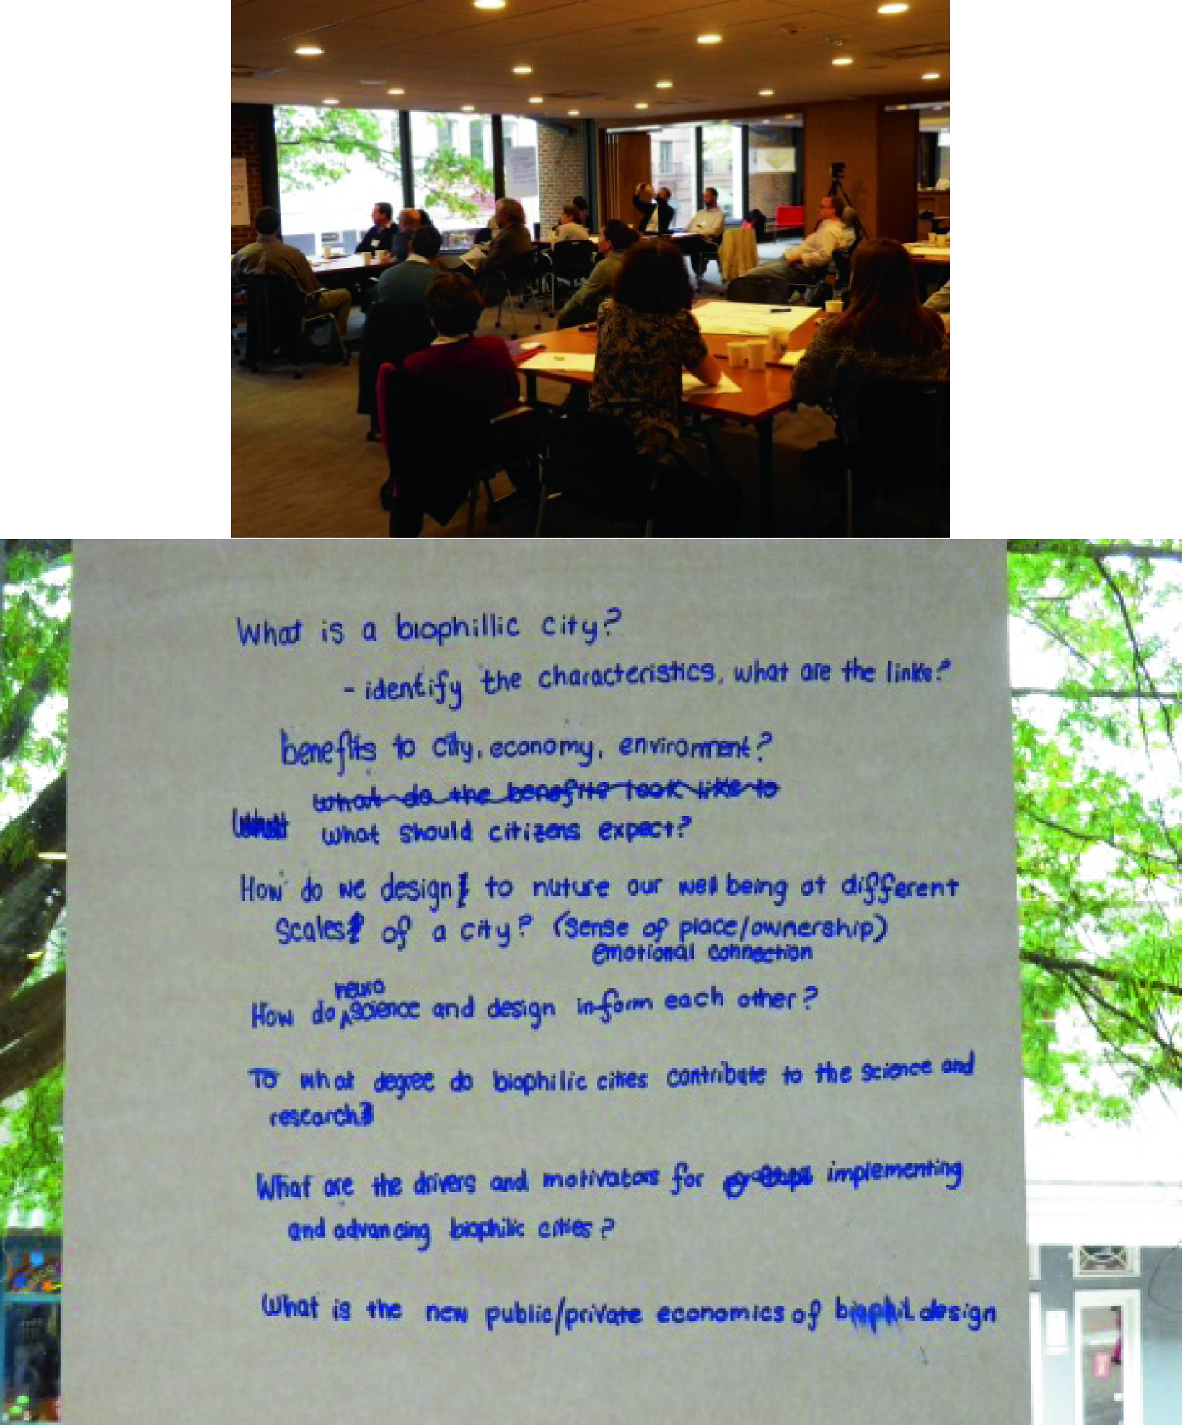 What is a biophillic city?
- identify the characteristics, what are the links?
benefits to city, economy, environment?
what do the benefits look like to
What what should citizens expect?
How do we design to nuture our well being at different
scales of a city? (sense of place/ownership)
emotional connection
neuro
How do science and design inform each other?
To what degree do biophilic cities contribute to the science and
research?
What are the drivers and motivators for implementing
and advancing biophilic cities?
What is the new public/private economics of biophil design